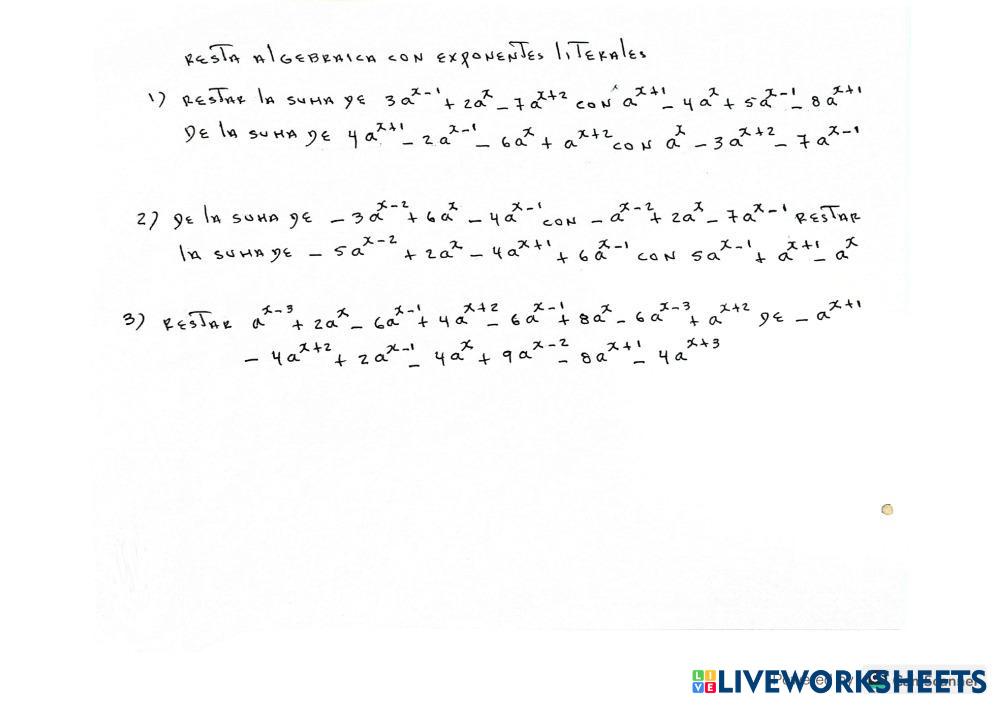 RESTA AlGEBRAICA CON EXPONENTES lITERALES
1) RESTAR lA SUMA DE 3a^(x-1) + 2a^x - 7a^(x+2) CON a^(x+1) - 4a^x + 5a^(x-1) - 8a^(x+1)
DE lA SUMA DE 4a^(x+1) - 2a^(x-1) - 6a^x + a^(x+2) CON a^x - 3a^(x+2) - 7a^(x-1)
2) DE lA SUMA DE - 3a^(x-2) + 6a^x - 4a^(x-1) CON - a^(x-2) + 2a^x - 7a^(x-1) RESTAR
lA SUMA DE - 5a^(x-2) + 2a^x - 4a^(x+1) + 6a^(x-1) CON 5a^(x-1) + a^(x+1) - a^x
3) RESTAR a^(x-3) + 2a^x - 6a^(x-1) + 4a^(x+2) - 6a^(x-1) + 8a^x - 6a^(x-3) + a^(x+2) DE - a^(x+1)
- 4a^(x+2) + 2a^(x-1) - 4a^x + 9a^(x-2) - 8a^(x+1) - 4a^(x+3)
LIVE LIVEWORKSHEETS